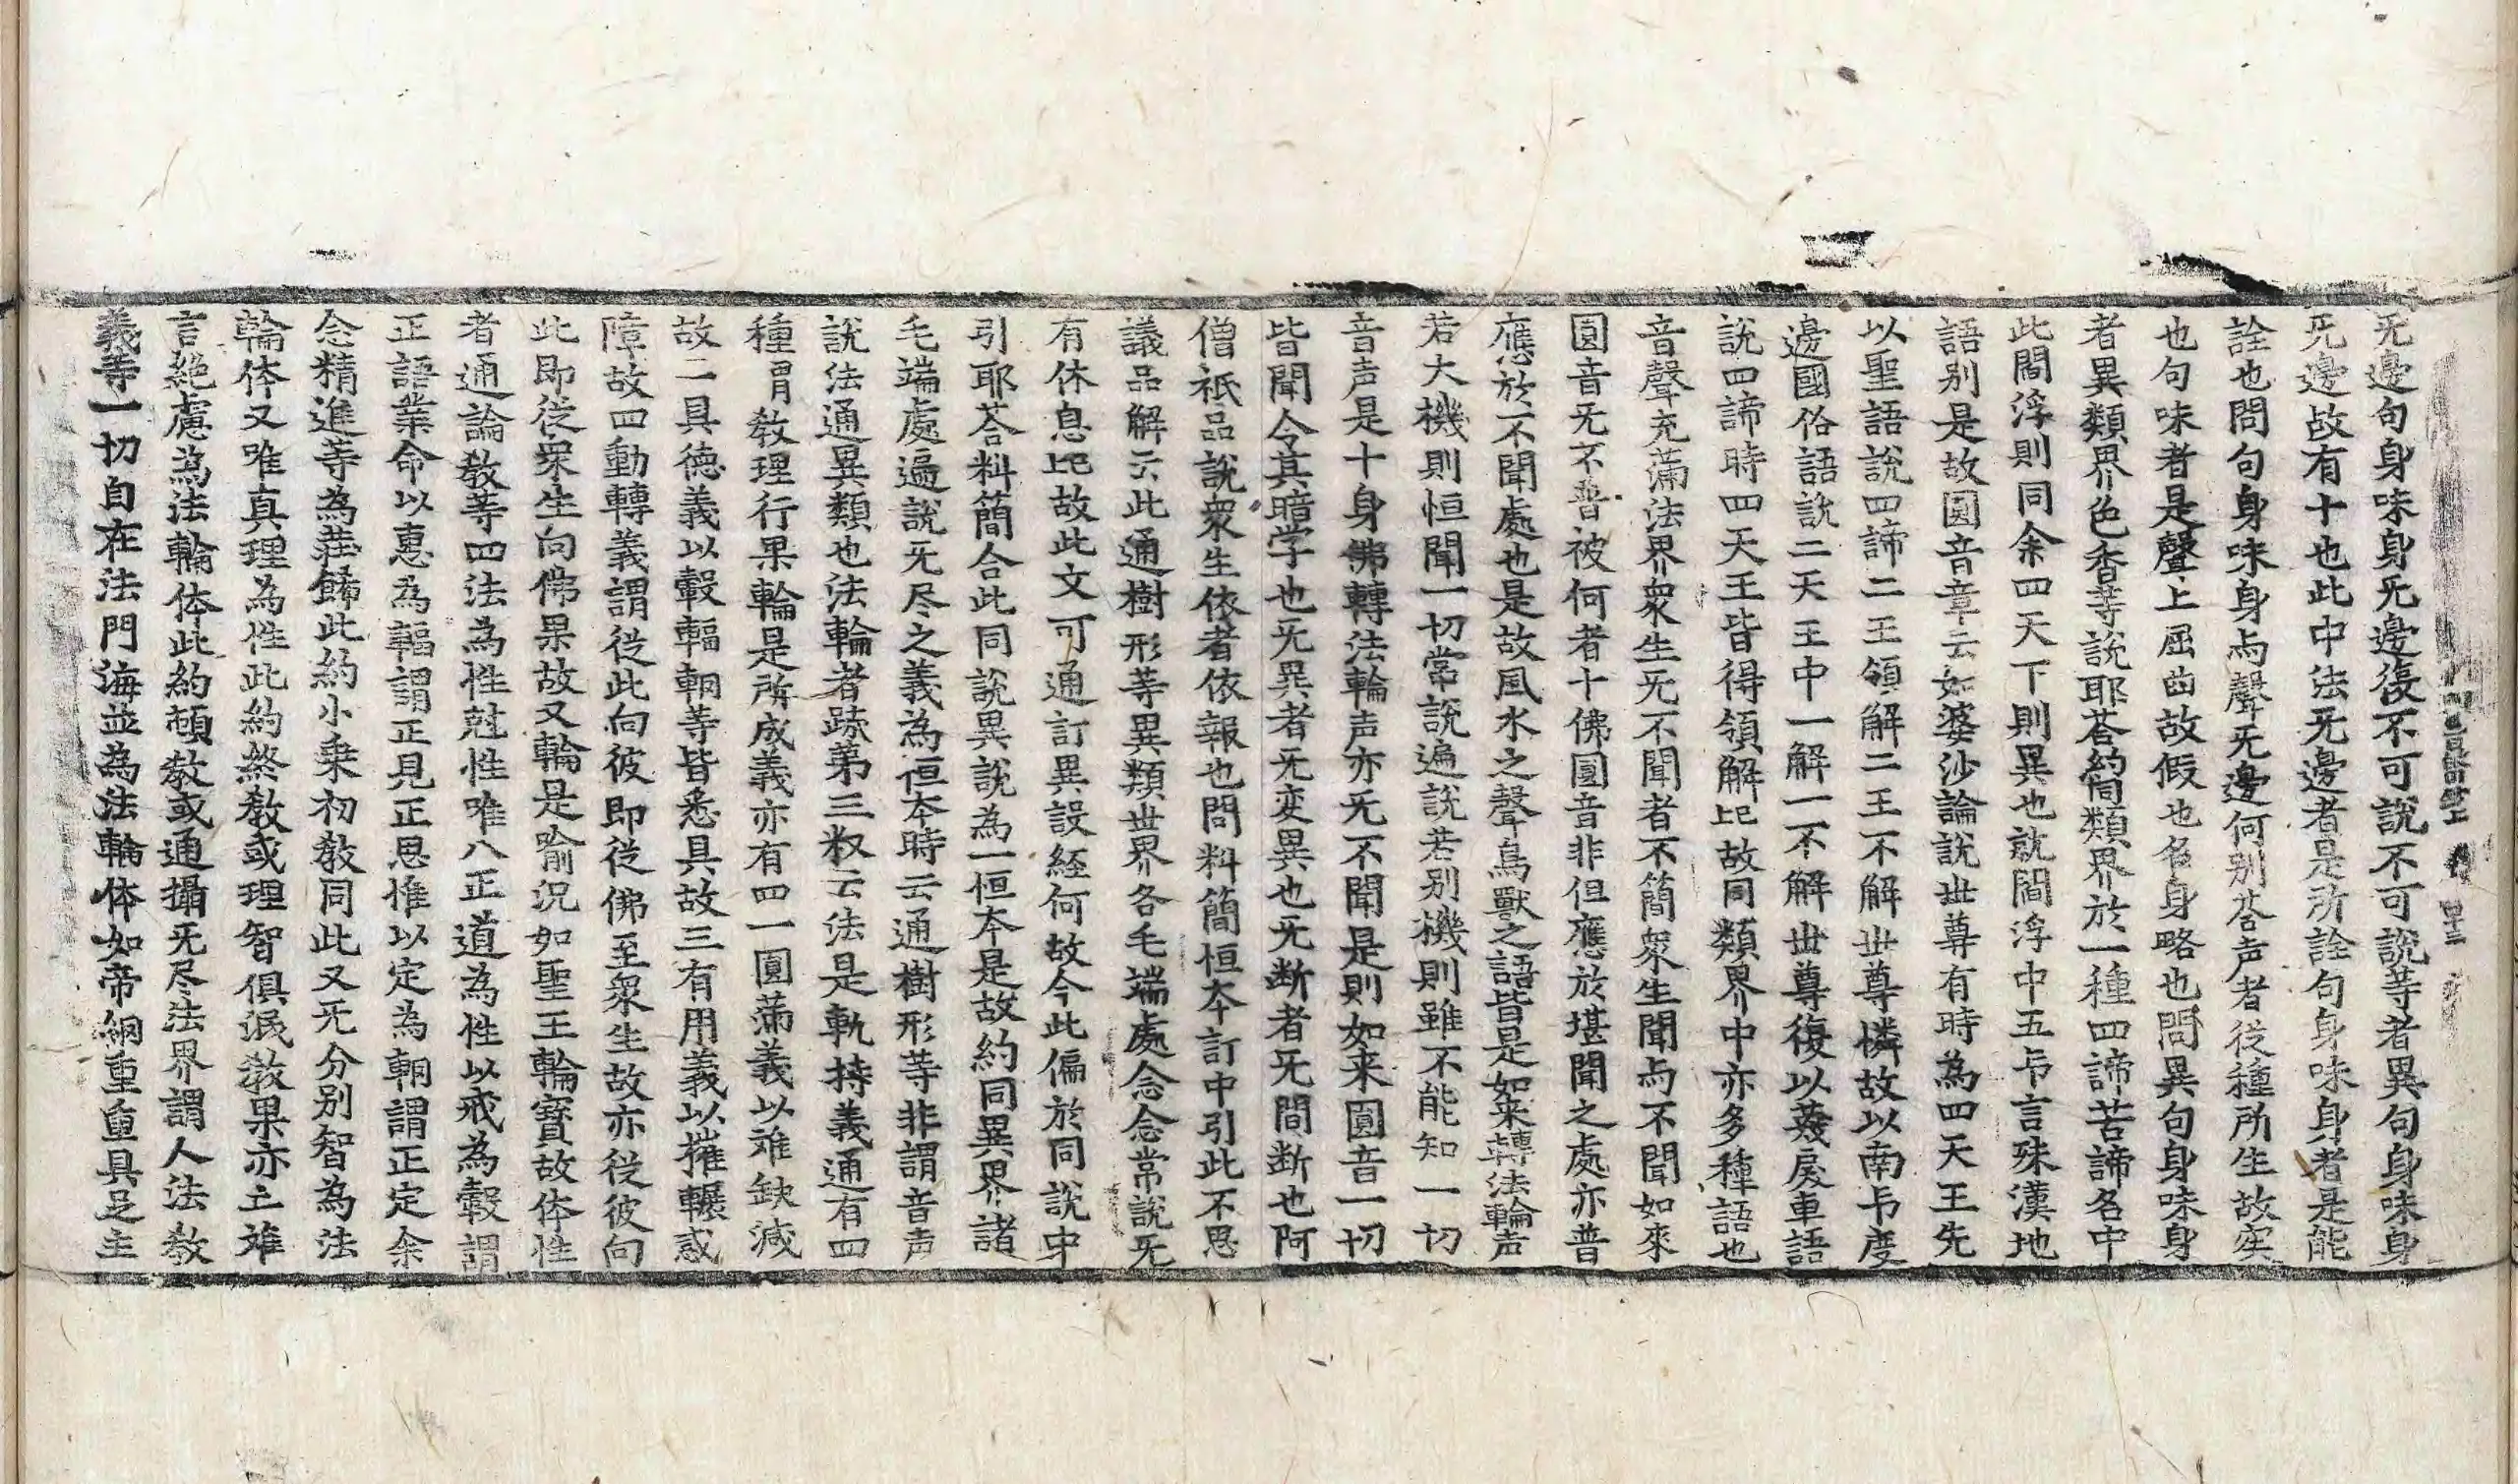 旡邊句身味身旡邊復不可說不可說等者異句身味身
旡邊故有十也此中法旡邊者是所詮句身味身者是能
詮也問句身味身与聲旡邊何别荅声者從種所生故実
也句味者是聲上屈曲故假也名身略也問異句身味身
者異類界色香等說耶荅約同類界於一種四諦苦諦名中
此閻浮則同余四天下則異也就閻浮中五卞言殊漢地
語别是故圓音章云如婆沙論說世尊有時為四天王先
以聖語說四諦二王領解二王不解世尊憐故以南卞度
邊國俗語說二天王中一解一不解世尊復以蔑戾車語
說四諦時四天王皆得領解比故同類界中亦多種語也
音聲充滿法界衆生旡不聞者不簡衆生聞与不聞如來
圓音旡不普被何者十佛圓音非但應於堪聞之處亦普
應於不聞處也是故風水之聲鳥獸之語皆是如来轉法輪声
若大機則恒聞一切常說遍說若别機則雖不能知一切
音声是十身佛轉法輪声亦旡不聞是則如来圓音一切
皆聞令其暗学也旡異者旡変異也旡断者旡間断也阿
僧祇品說衆生依者依報也問料簡恒夲訂中引此不思
議品解云此通樹形等異類世界各毛端處念念常說旡
有休息比故此文可通訂異設経何故今此偏於同說中
引耶荅料簡合此同說異說為一恒夲是故約同異界諸
毛端處遍說旡尽之義為恒夲時云通樹形等非謂音声
說法通異類也法輪者䟽第三㕘云法是軌持義通有四
種謂教理行果輪是所成義亦有四一圓滿義以雉缺減
故二具德義以轂輻輞等皆悉具故三有用義以摧輾惑
障故四動轉義謂從此向彼即從佛至衆生故亦從彼向
此即從衆生向佛果故又輪是喻况如聖王輪寳故体性
者通論教等四法為性尅性唯八正道為性以戒為轂謂
正語業命以惠為輻謂正見正思惟以定為輞謂正定余
念精進等為荘餙此約小乗初教同此又旡分别智為法
輪体又唯真理為性此約終教或理智俱泯教果亦亡雉
言絶慮為法輪体此約頓教或通攝旡尽法界謂人法教
義等一切自在法門海並為法輪体如帝網重重具足主